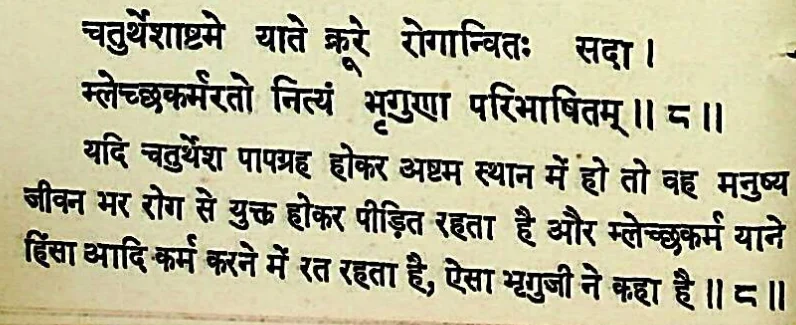 चतुर्थेशाष्टमे याते क्रूरे रोगान्वितः सदा ।
म्लेच्छकर्मरतो नित्यं भृगुणा परिभाषितम् ॥ ८ ॥
यदि चतुर्थेश पापग्रह होकर अष्टम स्थान में हो तो वह मनुष्य
जीवन भर रोग से युक्त होकर पीड़ित रहता है और म्लेच्छकर्म याने
हिंसा आदि कर्म करने में रत रहता है, ऐसा भृगुजी ने कहा है ॥ ८ ॥